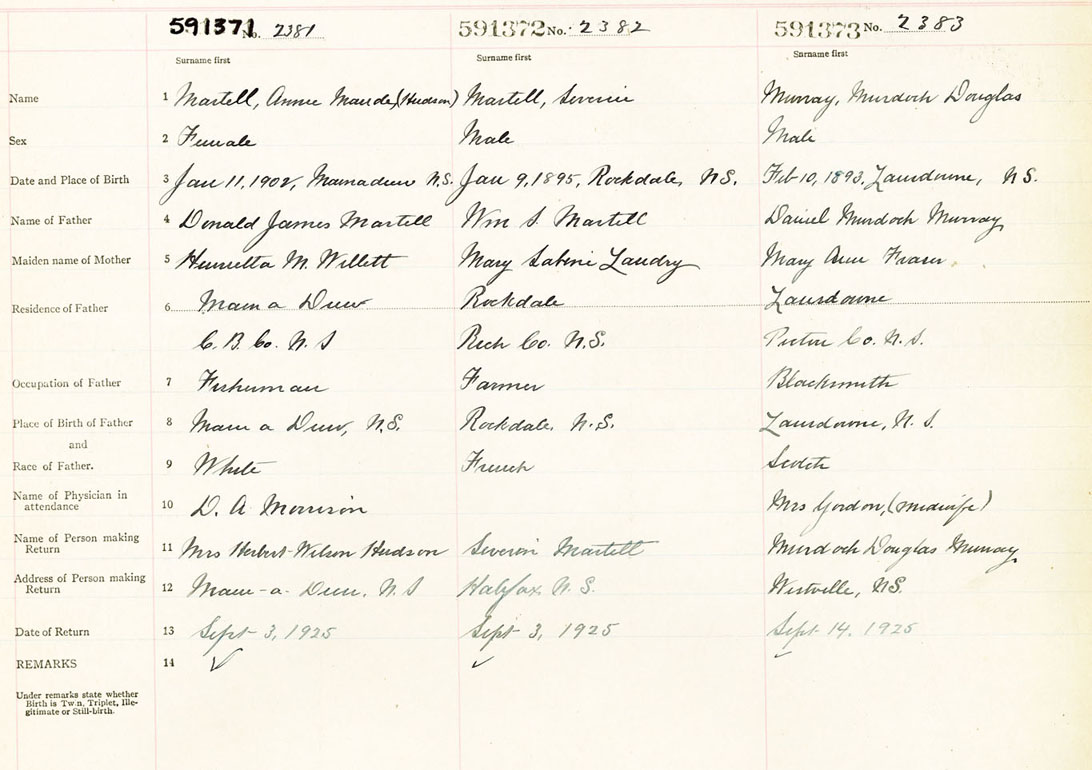 591371 No. 2381 591372 No. 2382 591373 No. 2383
Surname first Surname first Surname first
Name 1 Martell, Annie Maude (Hudson) Martell, Severin Murray, Murdoch Douglas
Sex 2 Female Male Male
Date and Place of Birth 3 Jan 11, 1902, N.S. Jan 9, 1895, Rockdale, N.S. Feb 10, 1893, Lansdowne, N.S.
Name of Father 4 Donald James Martell Wm S. Martell Daniel Murdoch Murray
Maiden name of Mother 5 Henrietta M. Willett Mary Sabine Landry Mary Ann Fraser
Residence of Father 6 Main a Dieu Rockdale Lansdowne
C. B. Co. N. S Rich Co. N.S. Pictou Co. N.S.
Occupation of Father 7 Fisherman Farmer Blacksmith
Place of Birth of Father 8 Main a Dieu, N.S. Rockdale, N.S. Lansdowne, N.S.
and
Race of Father. 9 White French Scotch
Name of Physician in
attendance 10 D. A Morrison Mrs Gordon, (midwife)
Name of Person making
Return 11 Mrs Herbert Wilson Hudson Severin Martell Murdoch Douglas Murray
Address of Person making
Return 12 Main-a-Dieu, N.S Halifax N.S. Westville, NS.
Date of Return 13 Sept 3, 1925 Sept 3, 1925 Sept 14. 1925
REMARKS 14 ✓ ✓ ✓
Under remarks state whether
Birth is Twin, Triplet, Ille-
gitimate or Still-birth.